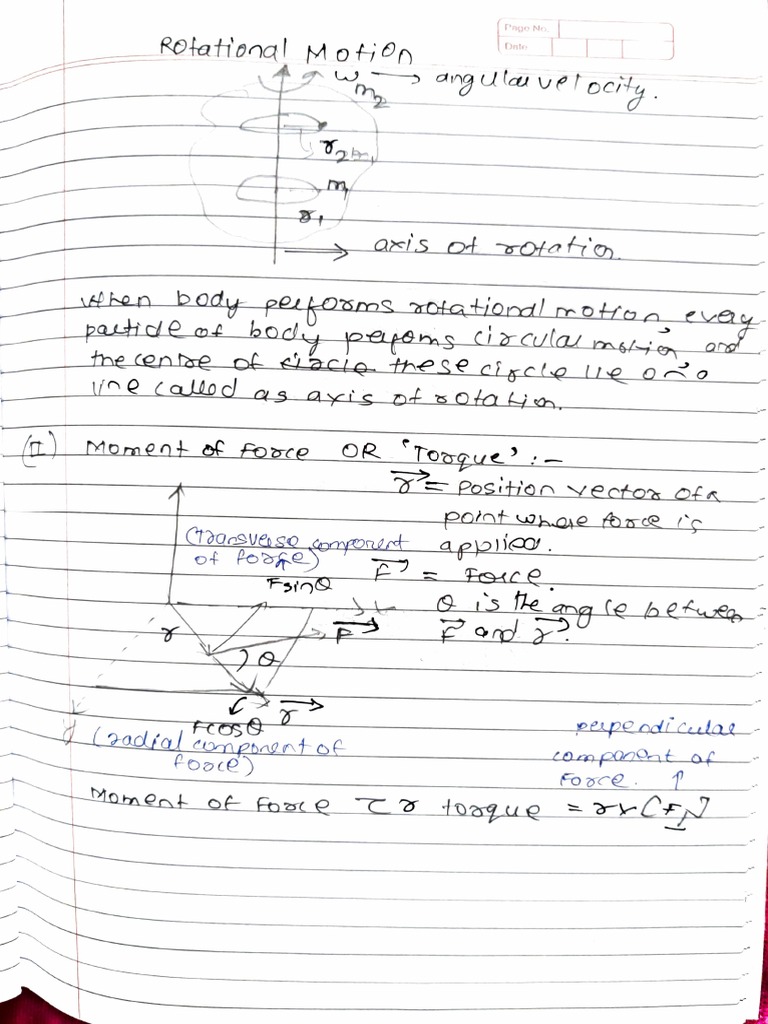 Page No.
Date
Rotational Motion
ω → angular velocity.
m2
r2
m1
r1
axis of rotation
When body performs rotational motion every
particle of body perfoms circular motion and
the centre of circle these circle lie on a
line called as axis of rotation.
(II) Moment of force OR 'Torque' :-
r = position vector of a
point where force is
applied.
(transverse component
of force)
F = Force.
Fsinθ
θ is the angle between
F and r.
r
F
θ
r
Fcosθ
(radial component of
force)
perpendicular
component of
Force. ↑
Moment of Force τ r torque = r×[FN]